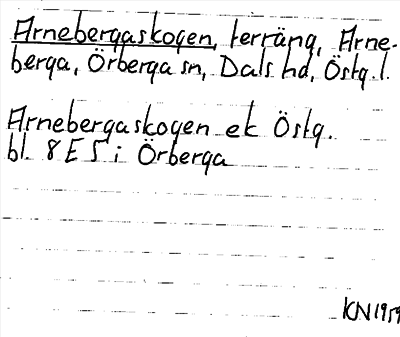 Arnebergaskogen, terräng, Arne-
berga, Örberga sn, Dals hd, Östg. l.
Arnebergaskogen ek Östg.
bl. 8 E 5 i Örberga
KN 1959